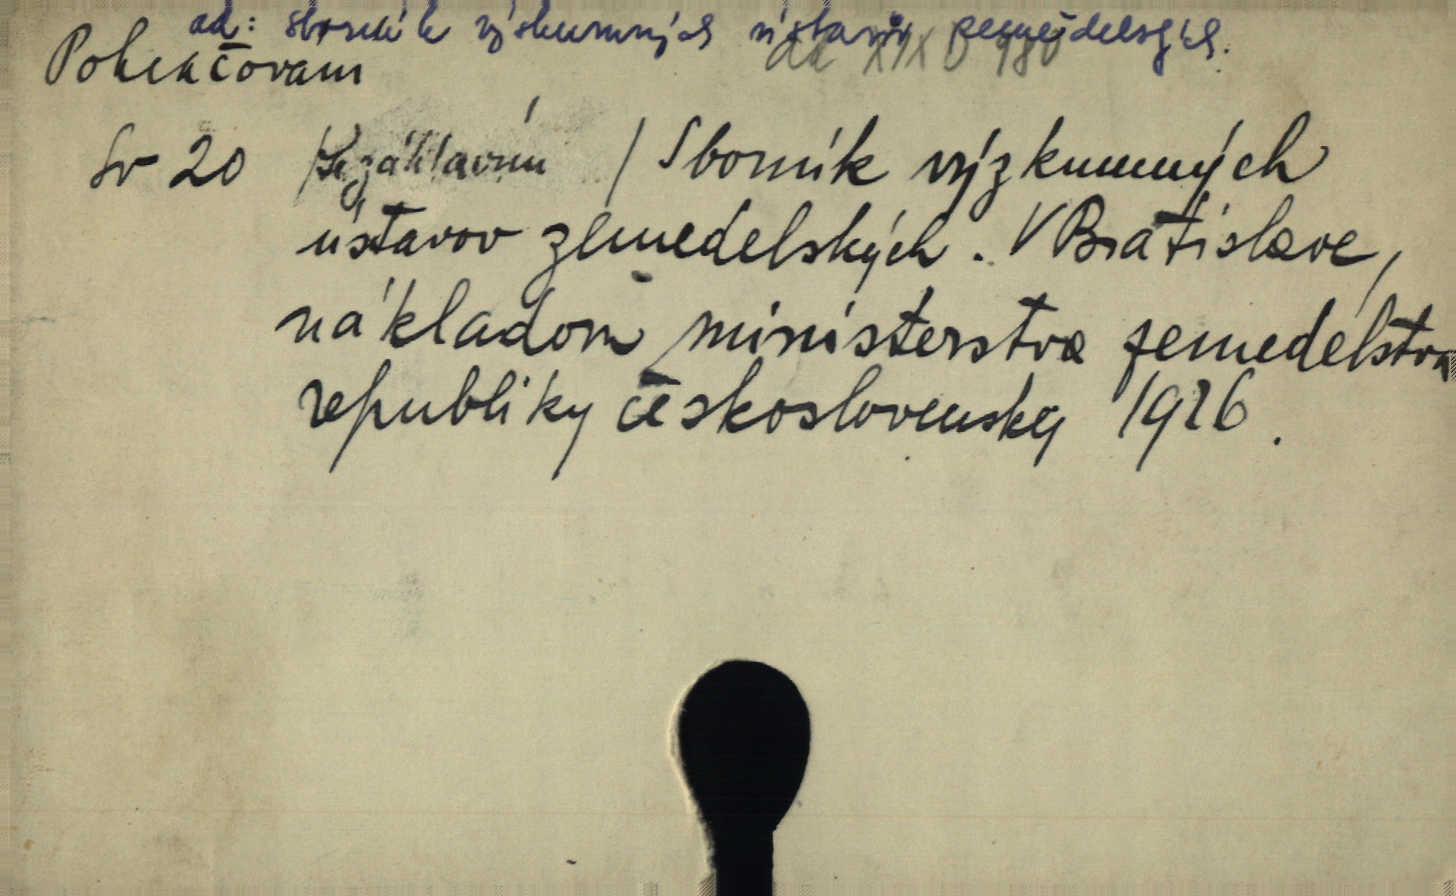 ad: Sborník výskumných ústavův zemědělských.
da XIX D 980
Pokračovani
Sv 20 /Se záhlavím / Sborník výzkumných
ústavov zemedelských. V Bratislave,
nákladom ministerstva zemedelstva
republiky československej 1926.